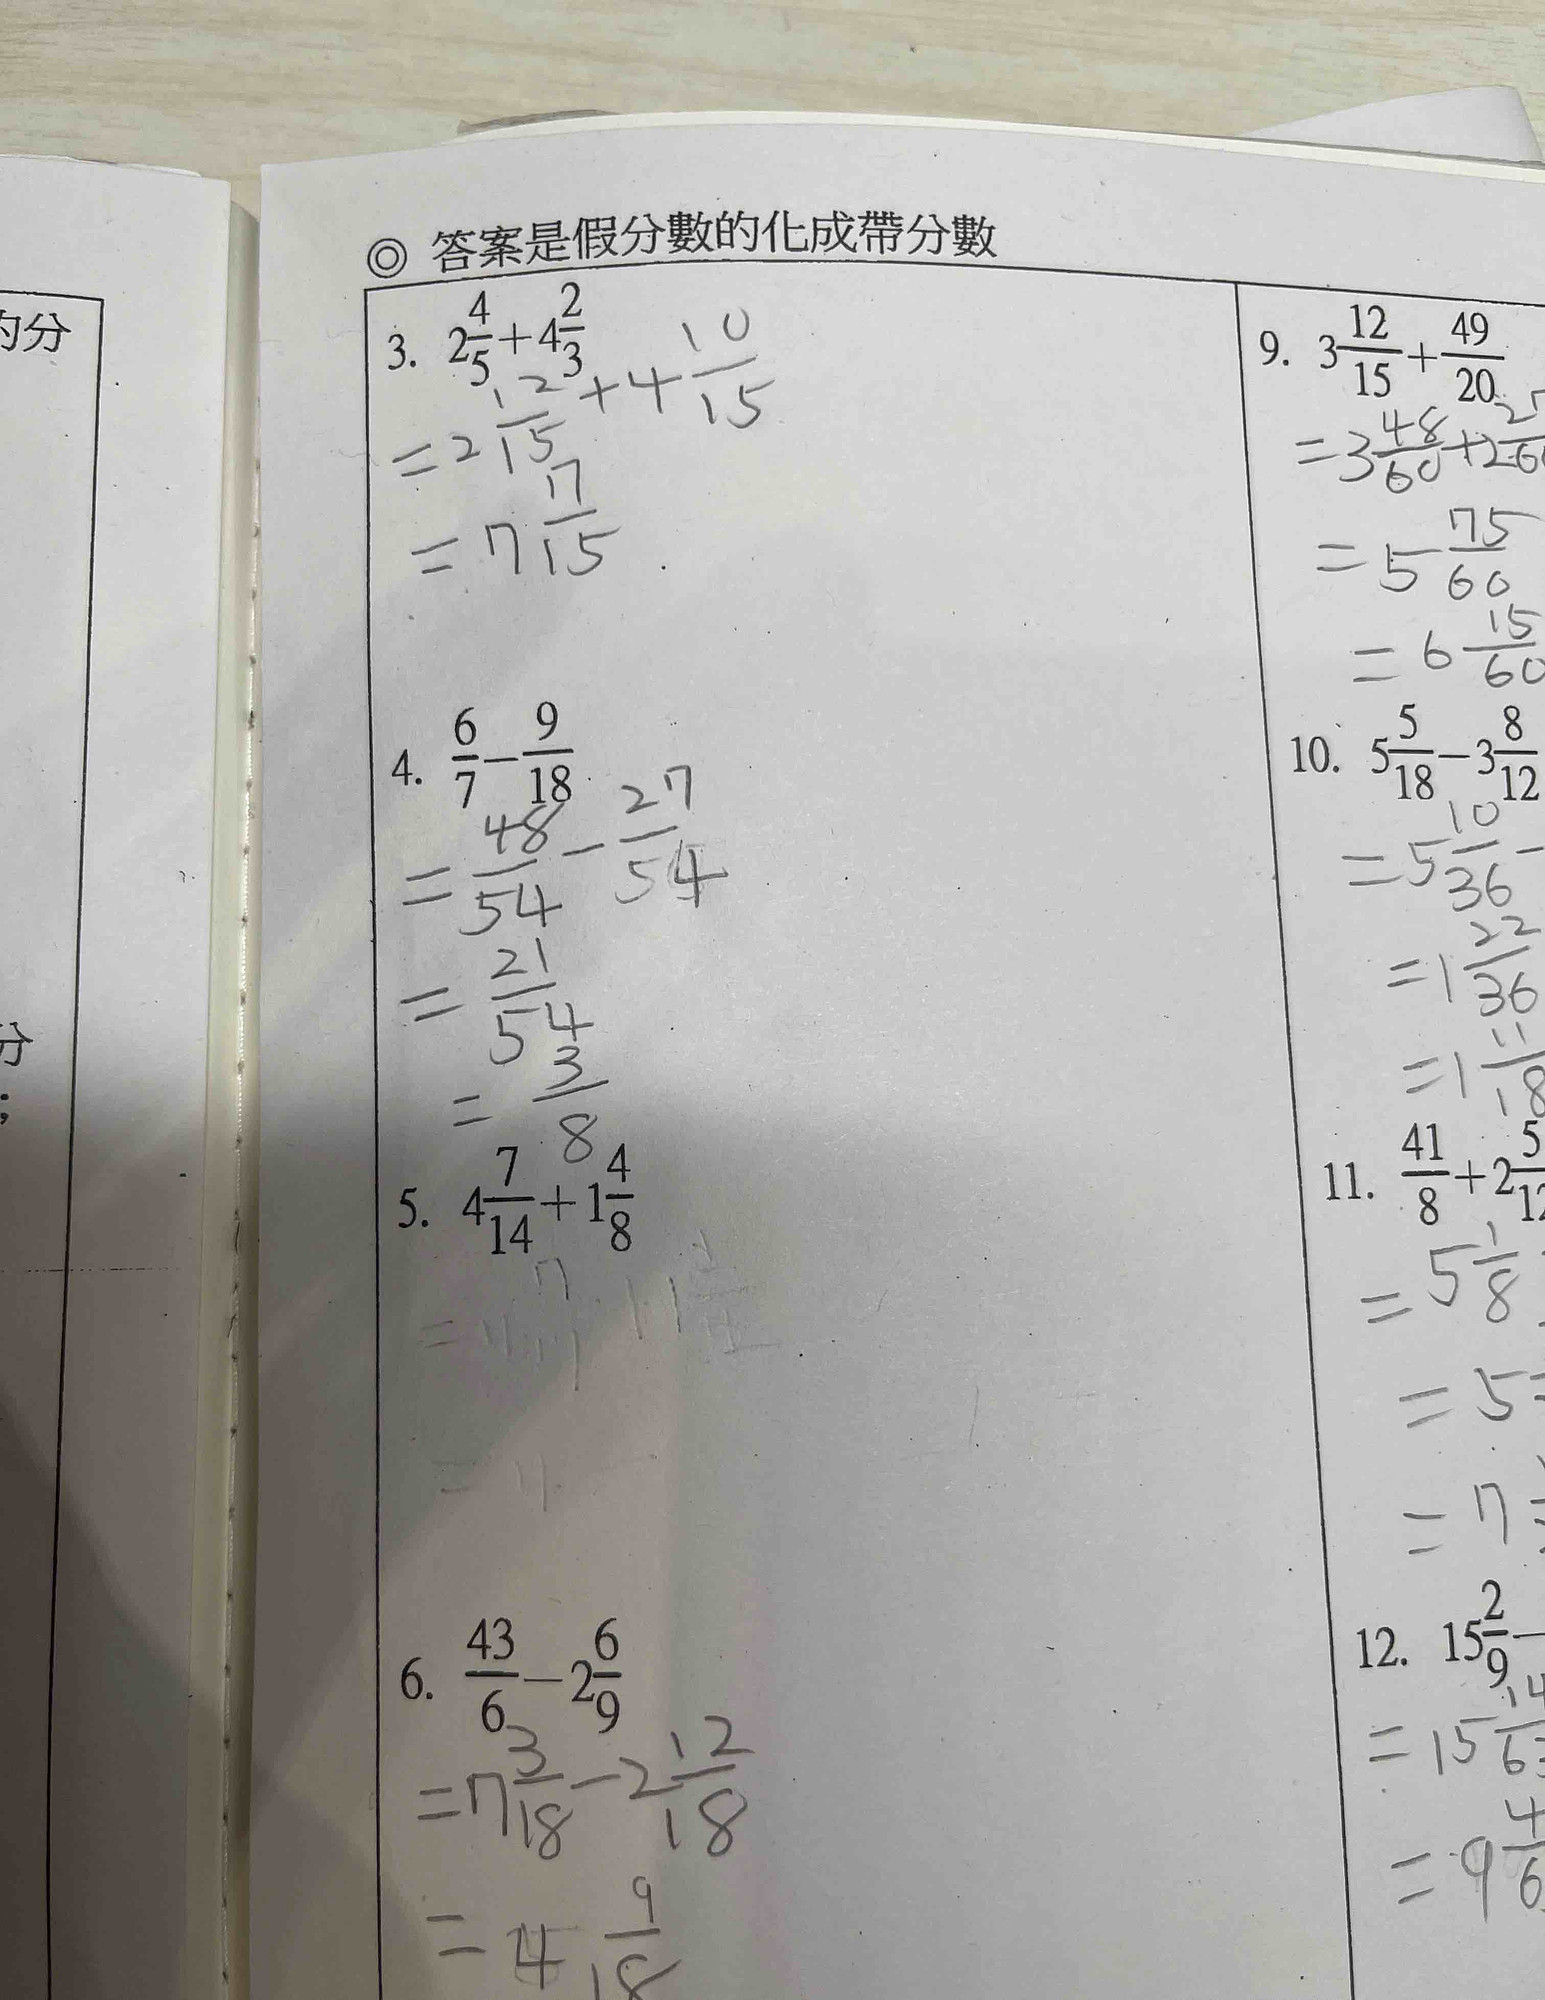 的分
分
;
◎ 答案是假分數的化成帶分數
3. 2 4/5 + 4 2/3
= 2 12/15 + 4 10/15
= 7 17/15
4. 6/7 - 9/18
= 48/54 - 27/54
= 21/54
= 3/8
5. 4 7/14 + 1 4/8
6. 43/6 - 2 6/9
= 7 3/18 - 2 12/18
= 4 9/18
9. 3 12/15 + 49/20
= 3 48/60 + 2
= 5 75/60
= 6 15/60
10. 5 5/18 - 3 8/12
= 5 10/36 -
= 1 22/36
= 1 11/18
11. 41/8 + 2 5/12
= 5 1/8
= 5
= 7
12. 15 2/9 -
= 15 14/63
= 9